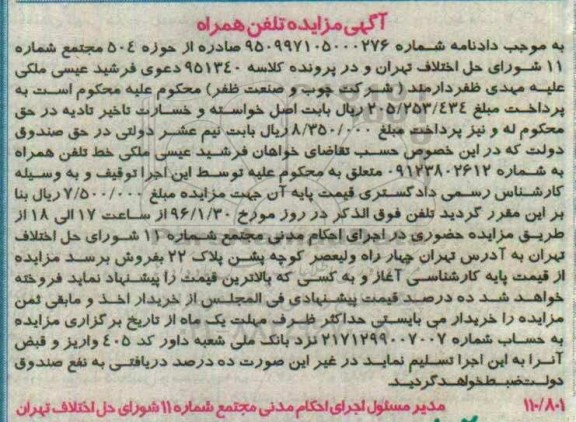 آگهی مزایده تلفن همراه
به موجب دادنامه شماره ۹۵۰۹۹۷۱۰۵۰۰۰۲۷۶ صادره از حوزه ۵۰۴ مجتمع شماره
۱۱ شورای حل اختلاف تهران و در پرونده کلاسه ۹۵۱۳۴۰ دعوی فرشید عیسی ملکی
علیه مهدی ظفردارمتد (شرکت چوب و صنعت ظفر) محکوم علیه محکوم است به
پرداخت مبلغ ۲۰۵/۲۵۳/۴۳۴ ریال بابت اصل خواسته و خسارت تاخیر تادیه در حق
محکوم له و نیز پرداخت مبلغ ۸/۳۵۰/۰۰۰ ریال بابت نیم عشر دولتی در حق صندوق
دولت که در این خصوص حسب تقاضای خواهان فرشید عیسی ملکی خط تلفن همراه
به شماره ۰۹۱۲۳۸۰۲۶۱۲ متعلق به محکوم علیه توسط این اجرا توقیف و به وسیله
کارشناس رسمی دادگستری قیمت پایه آن جهت مزایده مبلغ ۷/۵۰۰/۰۰۰ ریال بنا
بر این مقرر گردید تلفن فوق الذکر در روز مورخ ۹۶/۱/۳۰ از ساعت ۱۷ الی ۱۸ از
طریق مزایده حضوری در اجرای احکام مدنی مجتمع شماره ۱۱ شورای حل اختلاف
تهران به آدرس تهران چهار راه ولیعصر کوچه پشن پلاک ۲۲ بفروش برسد مزایده
از قیمت پایه کارشناسی آغاز و به کسی که بالاترین قیمت را پیشنهاد نماید فروخته
خواهد شد ده درصد قیمت پیشنهادی فی المجلس از خریدار اخذ و مابقی ثمن
مزایده را خریدار می بایستی حداکثر ظرف مهلت یک ماه از تاریخ برگزاری مزایده
به حساب شماره ۲۱۷۱۲۹۹۰۰۷۰۰۷ نزد بانک ملی شعبه داور کد ۴۰۵ واریز و قبض
آنرا به این اجرا تسلیم نماید در غیر این صورت ده درصد دریافتی به نفع صندوق
دولت ضبط خواهد گردید.
۱۱۰/۸۰۱ مدیر مسئول اجرای احکام مدنی مجتمع شماره ۱۱ شورای حل اختلاف تهران